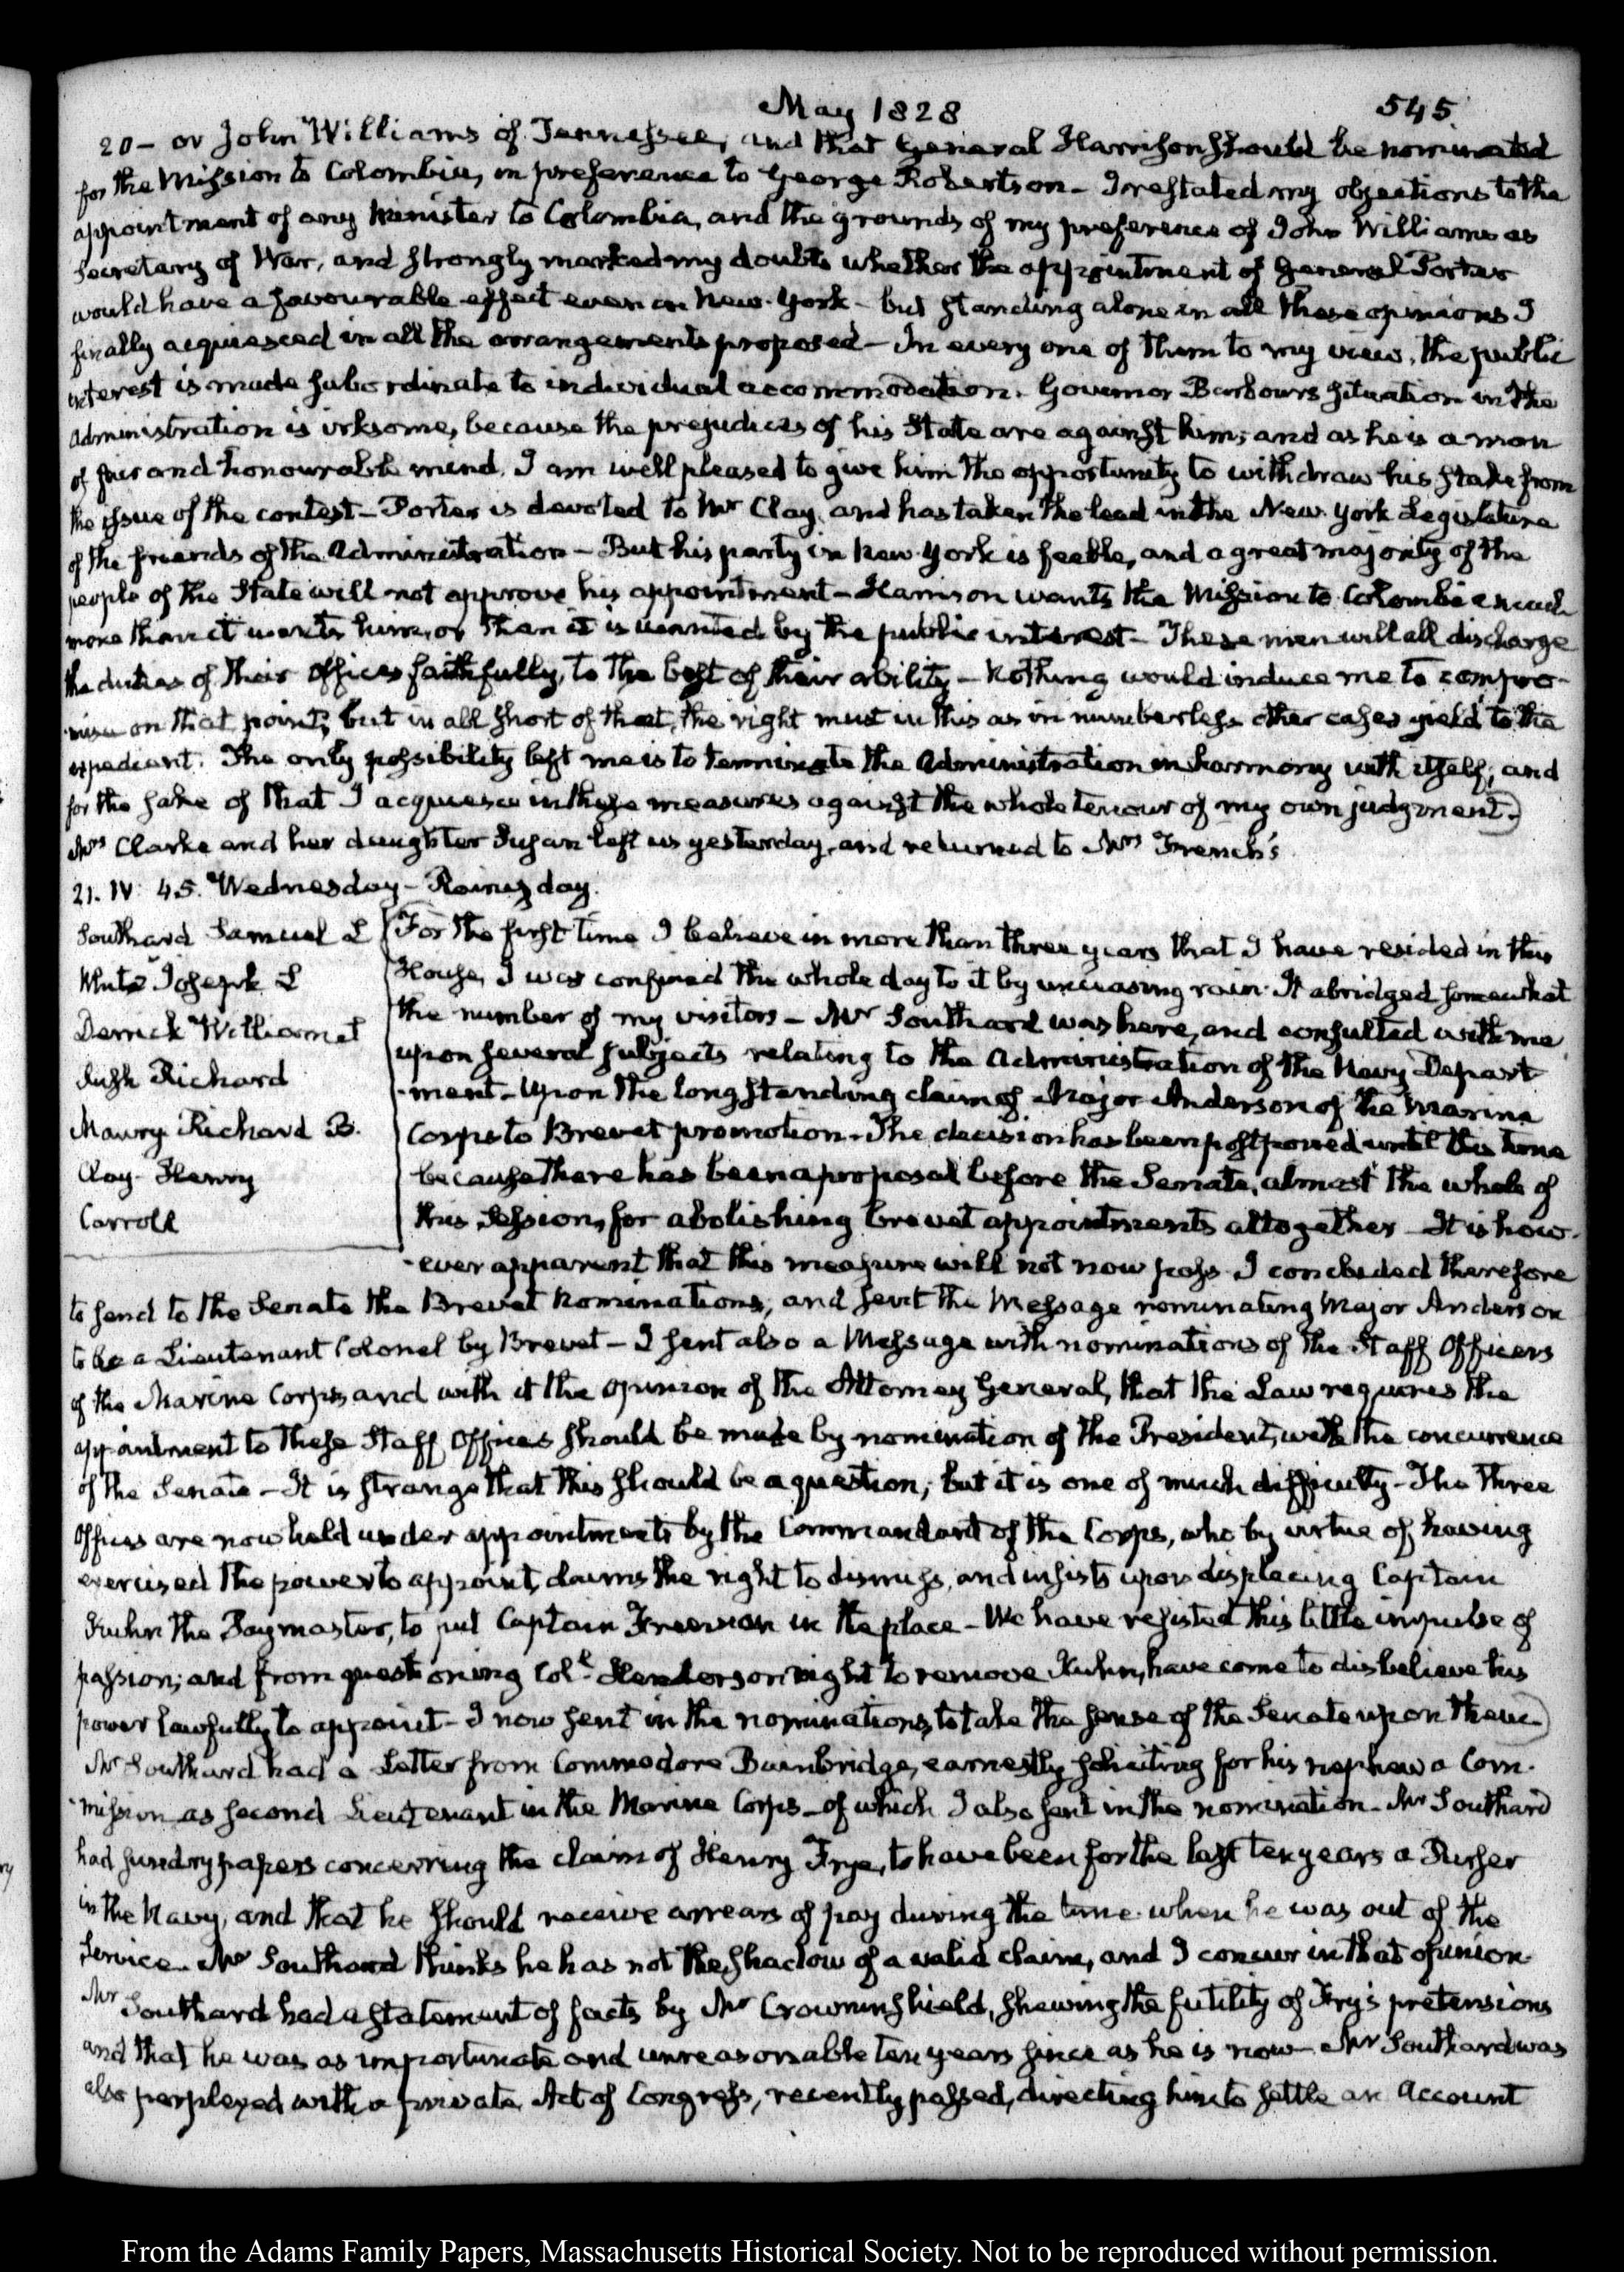 May 1828
545
20 – or John Williams of Tennessee, and that General Harrison should be nominated
for the Mission to Colombia, in preference to George Robertson – I restated my objections to the
appointment of any Minister to Colombia, and the grounds of my preference of John Williams as
Secretary of War, and strongly marked my doubts whether the appointment of General Porter
would have a favourable effect even in New-York – but standing alone in all these opinions I
finally acquiesced in all the arrangements proposed – In every one of them to my view, the public
interest is made subordinate to individual accommodation. Governor Barbour's situation in the
Administration is irksome, because the prejudices of his State are against him; and as he is a man
of fair and honourable mind, I am well pleased to give him the opportunity to withdraw his stake from
the issue of the contest – Porter is devoted to Mr Clay, and has taken the lead in the New-York Legislature
of the friends of the Administration – But his party in New-York is feeble, and a great majority of the
people of the State will not approve his appointment – Harrison wants the Mission to Colombia much
more than it wants him, or than it is wanted by the public interest – These men will all discharge
the duties of their Offices faithfully, to the best of their ability – Nothing would induce me to compro-
-mise on that point; but in all short of that, the right must in this as in numberless other cases yield to the
expedient. The only possibility left me is to terminate the Administration in harmony with itself; and
for the sake of that I acquiesce in these measures against the whole tenour of my own judgment.
Mrs Clarke and her daughter Susan left us yesterday, and returned to Mrs French's
21. IV: 45. Wednesday – Rainy day.
Southard Samuel L
White Joseph L
Derrick William S
Rush Richard
Maury Richard B.
Clay Henry
Carroll
For the first time I believe in more than three years that I have resided in this
House, I was confined the whole day to it by unceasing rain. It abridged somewhat
the number of my visitors – Mr Southard was here, and consulted with me
upon several subjects relating to the Administration of the Navy Depart
-ment – Upon the long standing claim of Major Anderson of the Marine
Corps to Brevet promotion – The decision has been postponed until this time
because there has been a proposal before the Senate, almost the whole of
this Session, for abolishing brevet appointments altogether – It is how-
-ever apparent that this measure will not now pass I concluded therefore
to send to the Senate the Brevet Nominations, and sent the Message nominating Major Anderson
to be a Lieutenant Colonel by Brevet – I sent also a Message with nominations of the Staff Officers
of the Marine Corps and with it the opinion of the Attorney General, that the Law requires the
appointment to these Staff Offices should be made by nomination of the President, with the concurrence
of the Senate – It is strange that this should be a question; but it is one of much difficulty – The three
Offices are now held under appointments by the Commandant of the Corps, who by virtue of having
exercised the power to appoint, claims the right to dismiss, and insists upon displacing Captain
Kuhn the Paymaster, to put Captain Freeman in the place – We have resisted this little impulse of
passion; and from questioning Coll Henderson right to remove Kuhn, have come to disbelieve his
power lawfully to appoint – I now sent in the nominations, to take the sense of the Senate upon them.
Mr Southard had a Letter from Commodore Bainbridge, earnestly soliciting for his nephew a Com-
-mission as second Lieutenant in the Marine Corps – of which I also sent in the nomination – Mr Southard
had sundry papers concerning the claim of Henry Frye, to have been for the last ten years a Purser
in the Navy, and that he should receive arrears of pay during the time when he was out of the
service – Mr Southard thinks he has not the shadow of a valid claim, and I concur in that opinion.
Mr Southard had a statement of facts by Mr Crowninshield, shewing the futility of Fry's pretensions
and that he was as importunate and unreasonable ten years since as he is now – Mr Southard was
also perplexed with a private Act of Congress, recently passed, directing him to settle an Account
From the Adams Family Papers, Massachusetts Historical Society. Not to be reproduced without permission.